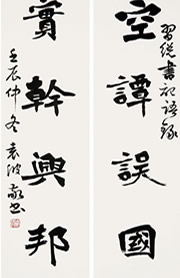 空譚誤國
實幹興邦
習總書記語錄
壬辰仲冬袁波敬書